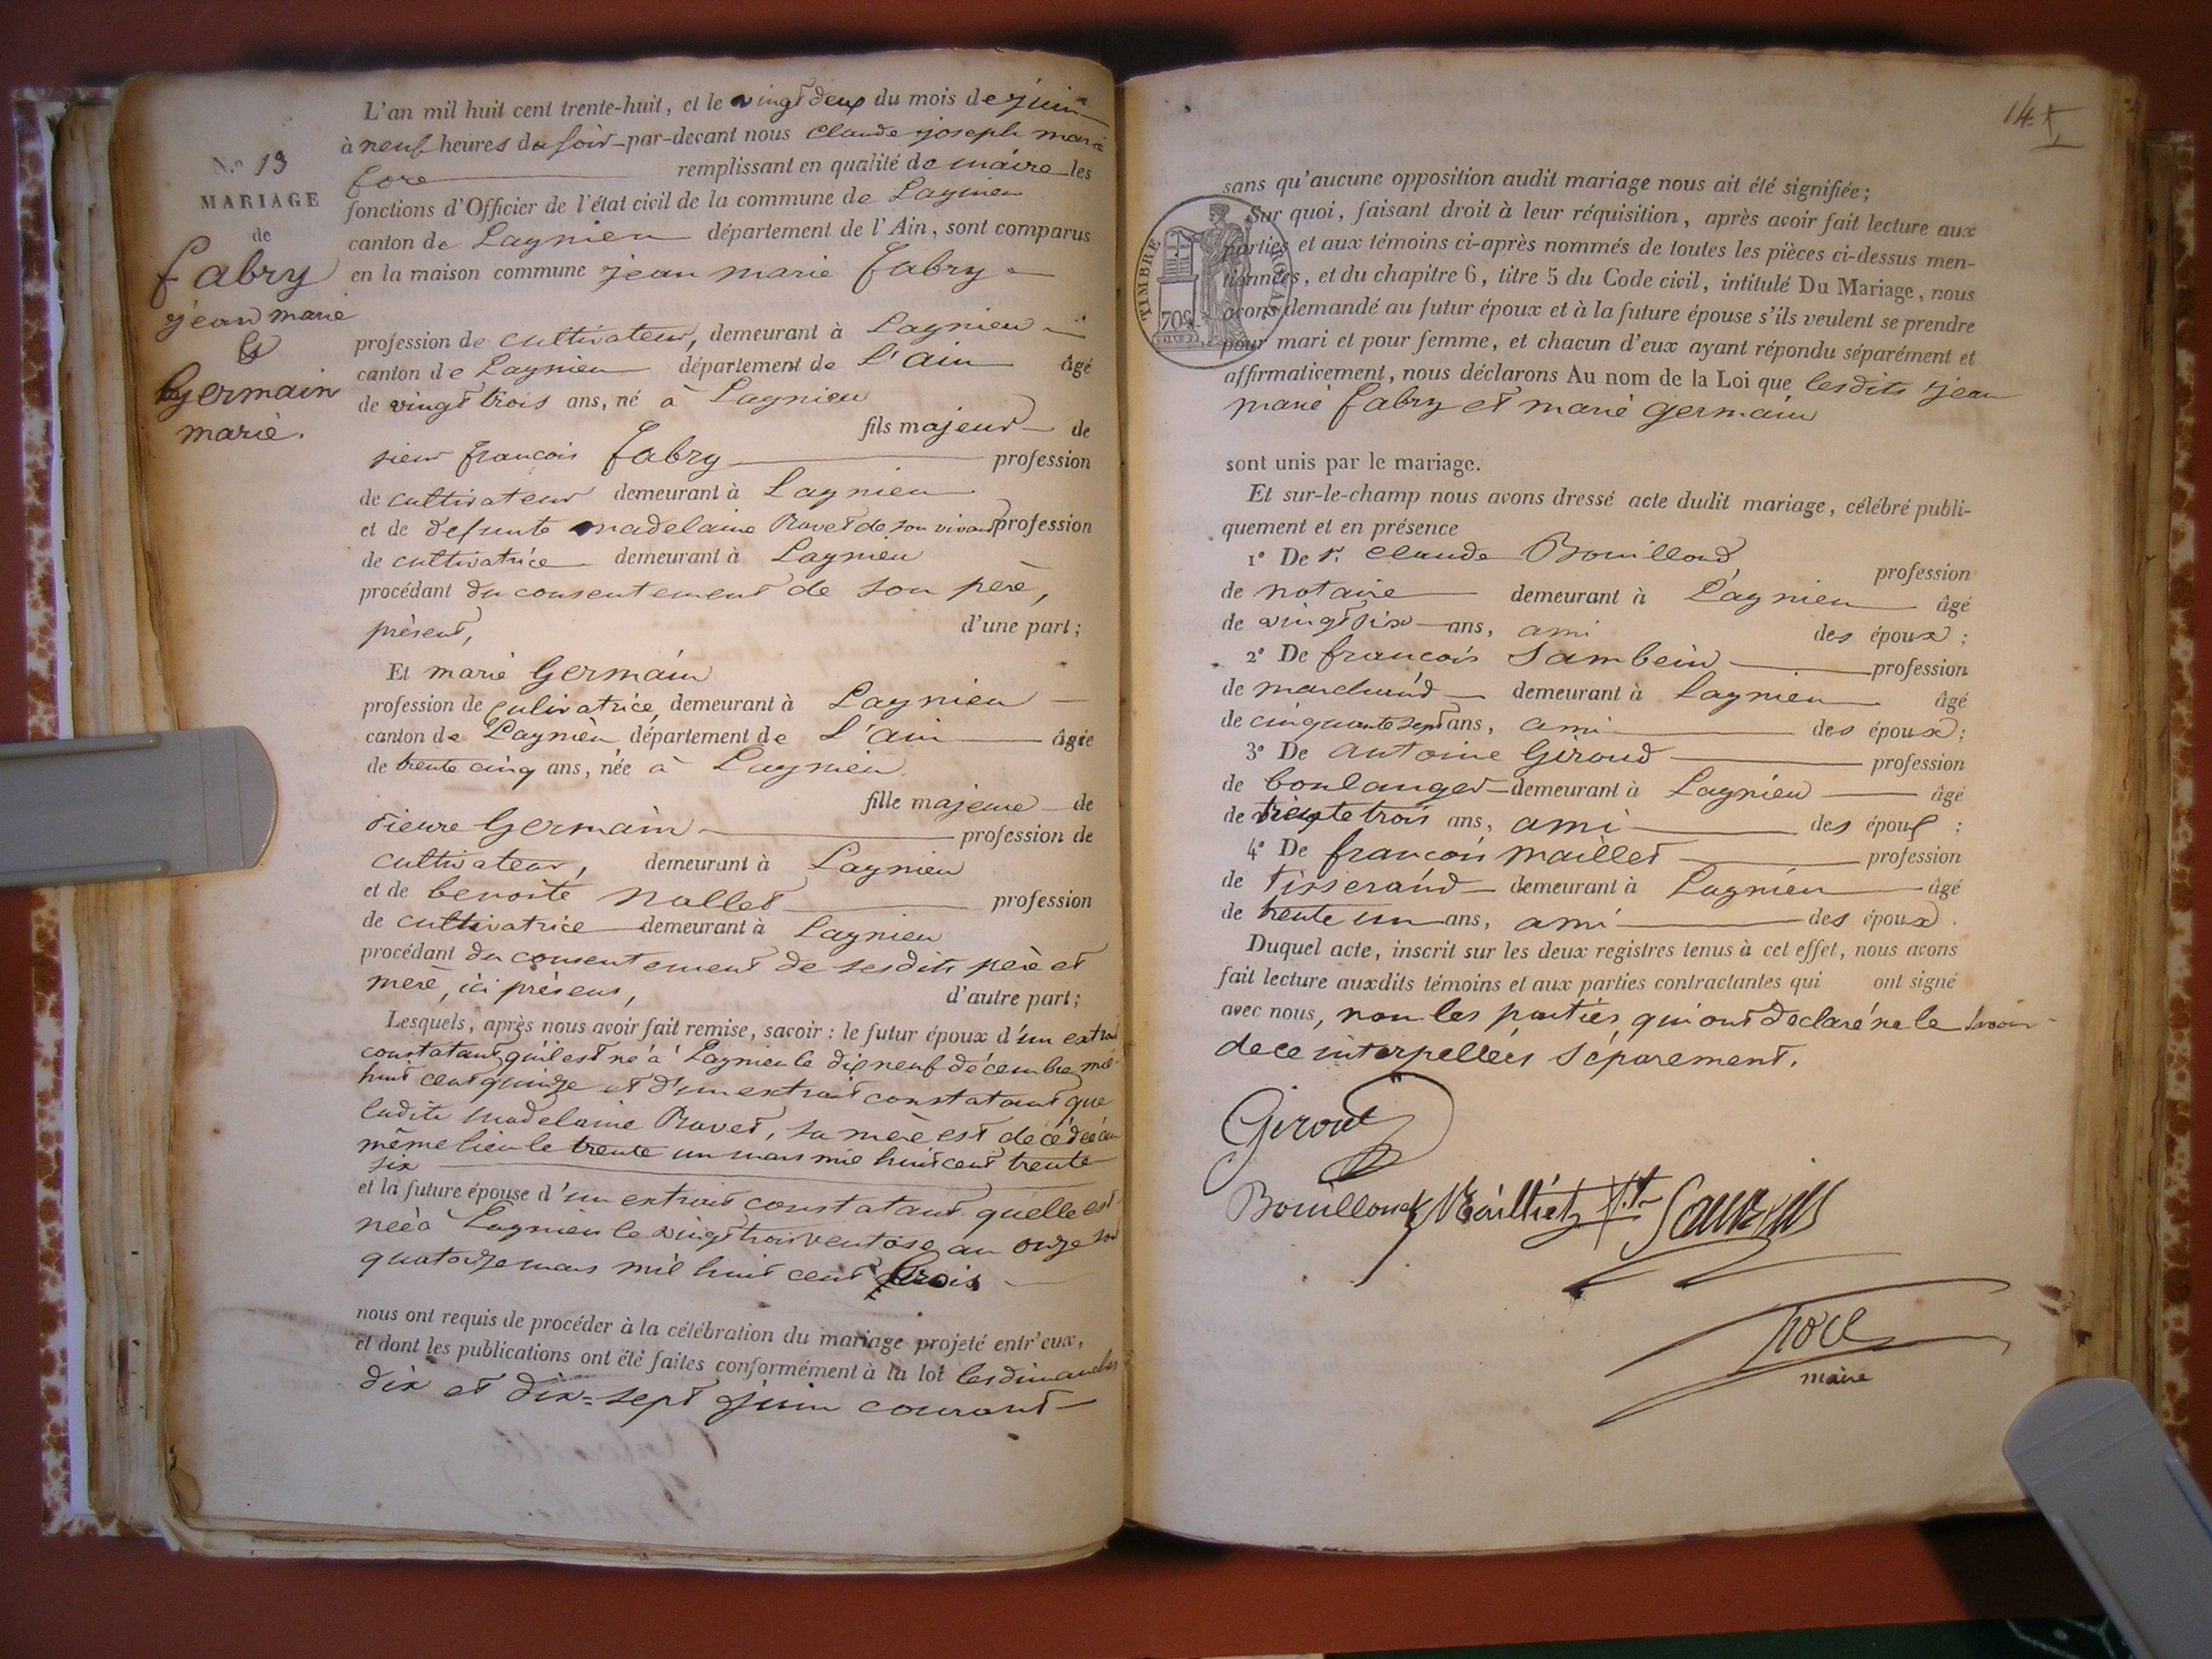 N.o 13
MARIAGE
de
fabry
jean marie
&
Germain
marie.
L'an mil huit cent trente-huit, et le vingt deux du mois de juin
à neuf heures du soir par-devant nous claude joseph marie
fore remplissant en qualité de maire les
fonctions d'Officier de l'état civil de la commune de Lagnieu
canton de Lagnieu département de l'Ain, sont comparus
en la maison commune jean marie fabry
profession de cultivateur, demeurant à Lagnieu
canton de Lagnieu département de L'ain âgé
de vingt trois ans, né à Lagnieu
fils majeur de
sieur francois fabry profession
de cultivateur demeurant à Lagnieu
et de defunte madelaine Ravet de son vivant profession
de cultivatrice demeurant à Lagnieu
procédant du consentement de son père,
présent, d'une part;
Et marie Germain
profession de culivatrice, demeurant à Lagnieu
canton de Lagnieu département de L'ain âgée
de trente cinq ans, née à Lagnieu
fille majeure de
Germain profession de
cultivateur, demeurant à Lagnieu
et de benoite nallet profession
de cultivatrice demeurant à Lagnieu
procédant du consentement de sesdits père et
mère, ici présens, d'autre part;
Lesquels, après nous avoir fait remise, savoir : le futur époux d'un extrait
constatant qu'il est né à Lagnieu le dix neuf décembre mil
huit cent quinze et d'un extrait constatant que
ladite madelaine Ravet, sa mère est décédée au
même lieu le trente un mars mil huit cent trente
six
et la future épouse d'un extrait constatant quelle est
née à Lagnieu le vingt trois ventose an onze
quatorze mars mil huit cent trois
nous ont requis de procéder à la célébration du mariage projeté entr'eux,
et dont les publications ont été faites conformément à la loi les dimanches
dix et dix-sept juin courant
14
sans qu'aucune opposition audit mariage nous ait été signifiée;
Sur quoi, faisant droit à leur réquisition, après avoir fait lecture aux
parties et aux témoins ci-après nommés de toutes les pièces ci-dessus men-
tionnées, et du chapitre 6, titre 5 du Code civil, intitulé Du Mariage, nous
avons demandé au futur époux et à la future épouse s'ils veulent se prendre
pour mari et pour femme, et chacun d'eux ayant répondu séparément et
affirmativement, nous déclarons Au nom de la Loi que lesdits jean
marie fabry et marie germain
TIMBRE ROYAL
70c
sont unis par le mariage.
Et sur-le-champ nous avons dressé acte dudit mariage, célébré publi-
quement et en présence
1o De sr. claude Bouilloud, profession
de notaire demeurant à Lagnieu âgé
de vingt six ans, ami des époux;
2o De francois Sambein profession
de marchand demeurant à Lagnieu âgé
de cinquante sept ans, ami des époux;
3o De antoine Giroud profession
de boulanger demeurant à Lagnieu âgé
de trente trois ans, ami des époux;
4o De francois maillet profession
de tisserand demeurant à Lagnieu âgé
de trente un ans, ami des époux.
Duquel acte, inscrit sur les deux registres tenus à cet effet, nous avons
fait lecture auxdits témoins et aux parties contractantes qui ont signé
avec nous, non les parties qui ont declaré ne le savoir
de ce interpellées séparement.
Girout
Bouilloud Mailliet
maire